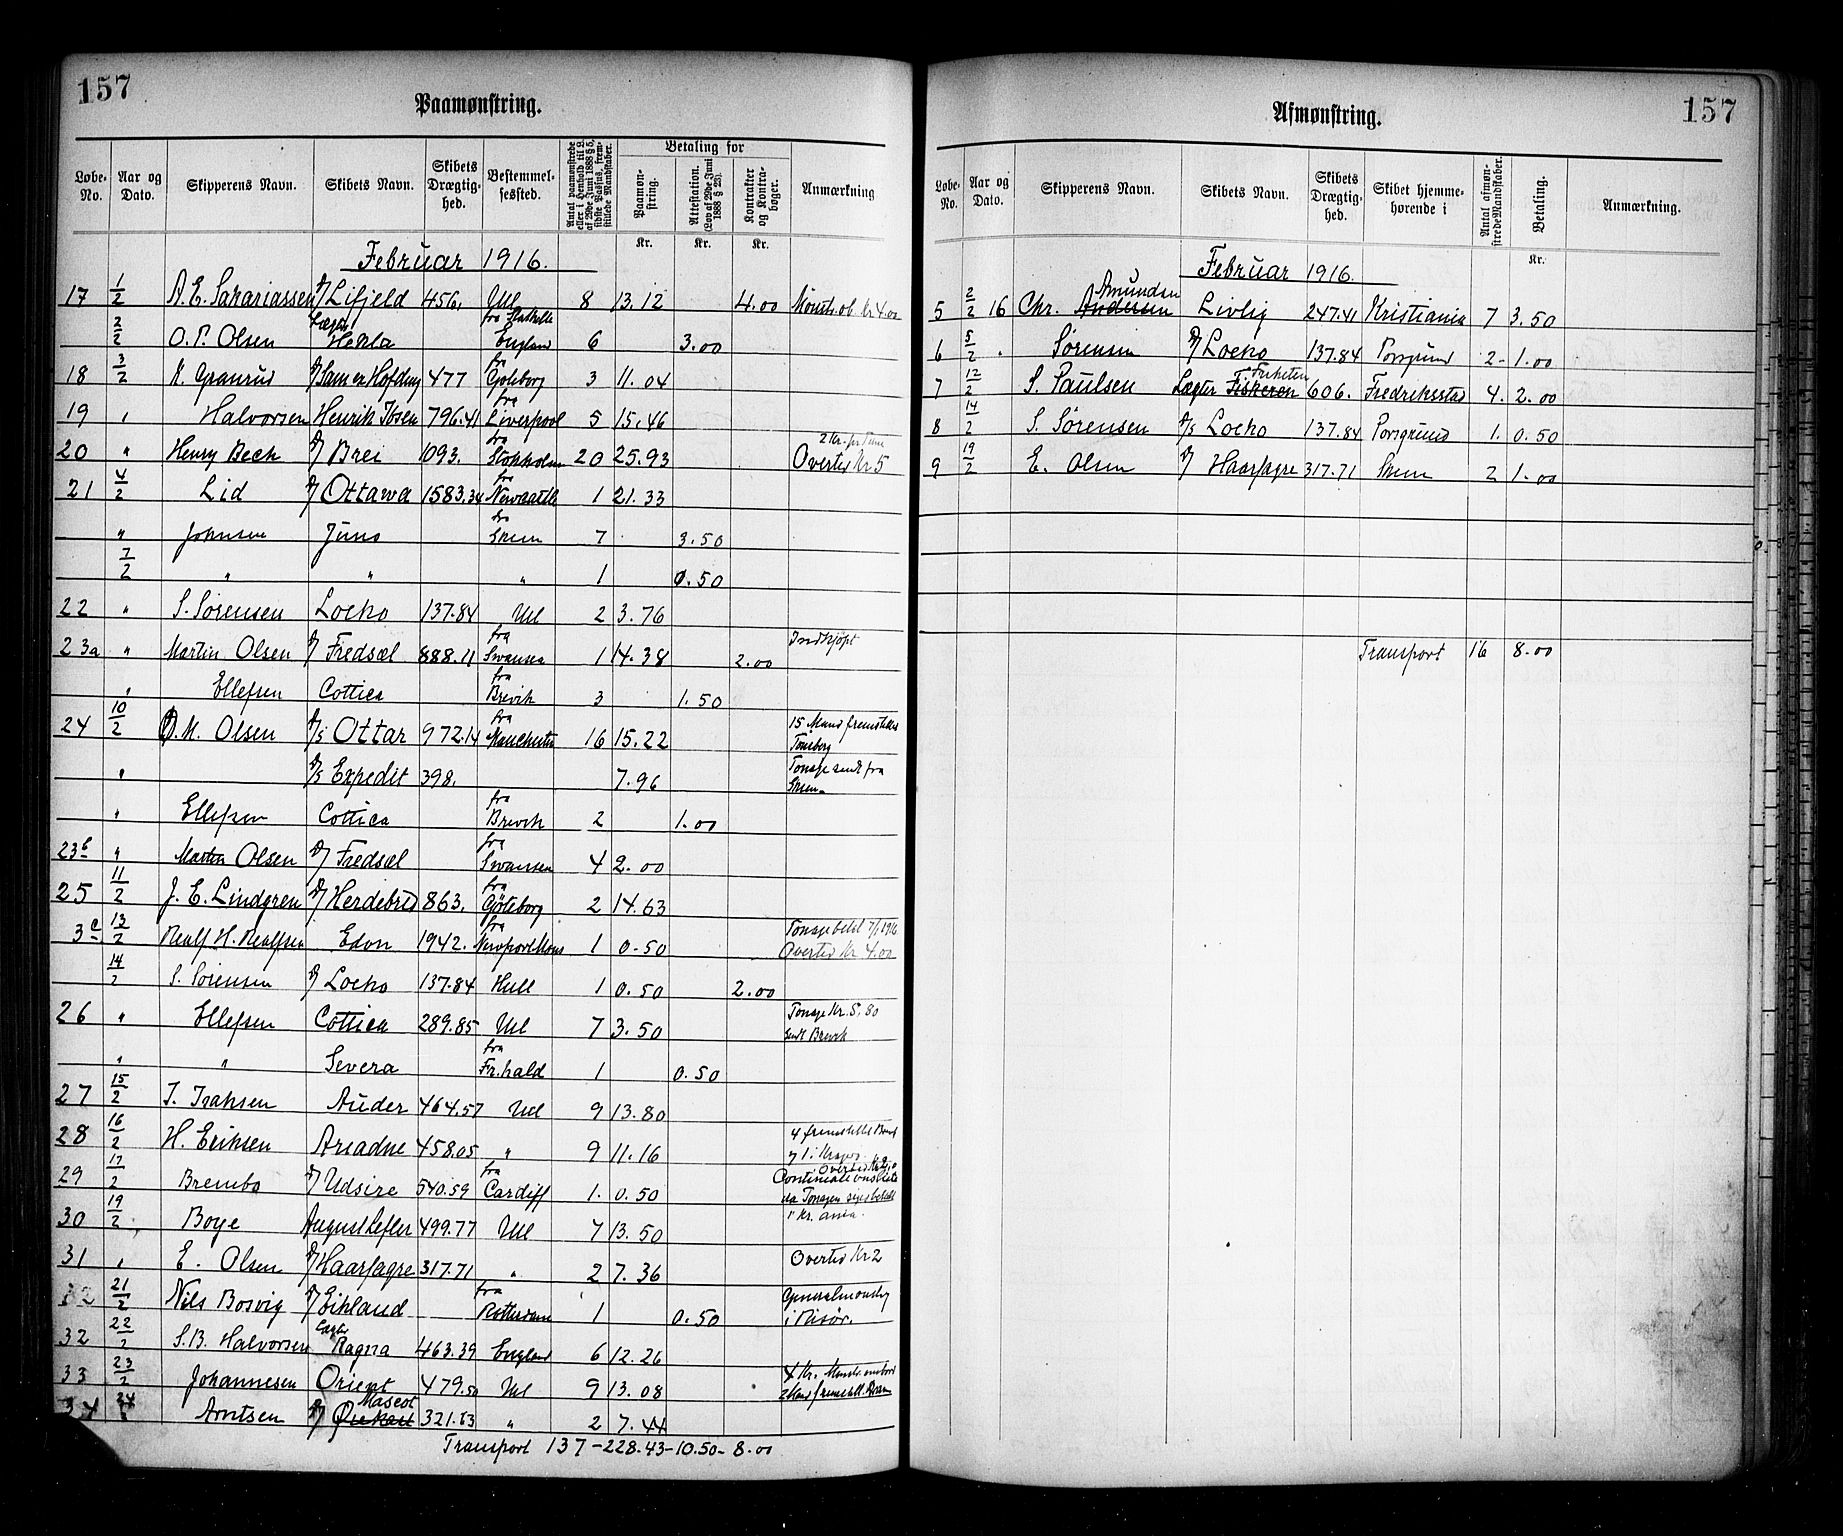 157
Paamønstring.
Løbe-No. Aar og Dato. Skipperens Navn. Skibets Navn. Skibets Drægtighed. Bestemmelsessted. Antal paamønstrede eller i Henhold til L. af 29de Juni 1888 § 5, sidste Passus, fremstillede Mandskaber. Betaling for Paamønstring. Attestation. (Lov af 29de Juni 1888 § 23). Kontrakter og Kontrabøger. Anmærkning
Kr. Kr. Kr.
Februar 1916.
17 1/2 A. E. Sakariassen D/ Lifjeld 456. Utl fra Stathelle 8 13.12 4.00 Mønstr. ob. Kr 4.00
2/2 O. P. Olsen Lægter Hekla England 6 3.00
18 3/2 K. Granrud D/ Sam ex Hofding 477 fra Goteborg 3 11.04
19 " Halvorsen Henrik Ibsen 796.41 fra Liverpool 5 15.46
20 " Henry Bech D/ Brei 1093. fra Stokholm 20 25.93 Overtid Kr 5
21 4/2 Lid D/ Ottawa 1583.34 fra Newcastle 1 21.33
" Johnsen Juno fra Skien 7 3.50
7/2 " " " 1 0.50
22 " S. Sørensen Locko 137.84 Utl 2 3.76
23a " Martin Olsen D/ Fredsæl 888.11 fra Swansea 1 14.38 2.00 Indkjøpt
" Ellefsen Cottica fra Brevik 3 1.50
24 10/2 O. M. Olsen D/S Ottar 972.14 fra Manchester 16 15.22 15 Mand fremstillet Tønsberg
" D/S Expedit 398. 7.96 Tonage sendt fra Skien
" Ellefsen Cottica fra Brevik 2 1.00
23b " Martin Olsen D/ Fredsæl fra Swansea 4 2.00
25 11/2 J. E. Lindgren D/ Herdebred 863. fra Gøteborg 2 14.63
3c 13/2 Realf H. Realfsen Edon 1942. fra Newport Mons 1 0.50 Tonage betalt 7/1 1916 Overtid Kr 4.00
14/2 S. Sørensen D/ Locko 137.84 Hull 1 0.50 2.00
26 " Ellefsen Cottica 289.85 Utl 7 3.50 Tonage Kr. 5,80 sendt Brevik
" " Severa fra Fr.hald 1 0.50
27 15/2 I. Isaksen Auder 464.57 Utl 9 13.80
28 16/2 H. Eriksen Ariadne 458.05 " 9 11.16 4 fremstillet Brevik
29 17/2 Brembo D/ Udsire 540.59 fra Cardiff 1. 0.50
30 19/2 Boye August Lefler 499.77 Utl 7 13.50
31 " E. Olsen D/ Haarfagre 317.71 " 2 7.36 Overtid Kr 2
21/2 Nils Bosvig D/ Eikland fra Rotterdam 1 0.50 Generalmønstring i Risør.
32 22/2 S. B. Halvorsen Lægter Ragna 463.39 England 6 12.26
33 23/2 Johannesen Orient 479.50 Utl 9 13.08 4 Kr. Mønstr. ombord
34 24/2 Arntsen D/ Mascot 321.13 " 2 7.44
Transport 137 - 228.43 - 10.50 - 8.00
Afmønstring.
157
Løbe-No. Aar og Dato. Skipperens Navn. Skibets Navn. Skibets Drægtighed. Skibet hjemmehørende i Antal afmønstrede Mandskaber. Betaling. Anmærkning.
Kr.
Februar 1916.
5 2/2 16 Chr. Andersen Amundsen Livlig 247.41 Kristiania 7 3.50
6 5/2 " Sørensen D/ Locko 137.84 Porsgrund 2 - 1.00
7 12/2 S. Paulsen Lægter Fiskeren Friheten 606. Fredriksstad 4. 2.00
8 14/2 S. Sørensen D/S Locko 137.84 Porsgrund 1. 0.50
9 19/2 E. Olsen D/ Haarfagre 317.71 Skien 2 1.00
Transport 16 8.00